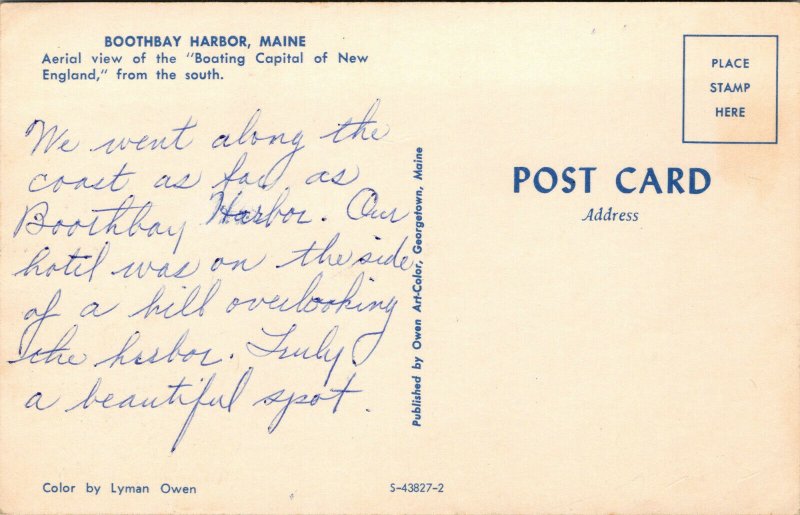 BOOTHBAY HARBOR, MAINE
Aerial view of the "Boating Capital of New
England," from the south.
We went along the
coast as far as
Boothbay Harbor. Our
hotel was on the side
of a hill overlooking
the harbor. Truly
a beautiful spot.
Color by Lyman Owen
S-43827-2
Published by Owen Art-Color, Georgetown, Maine
PLACE
STAMP
HERE
POST CARD
Address